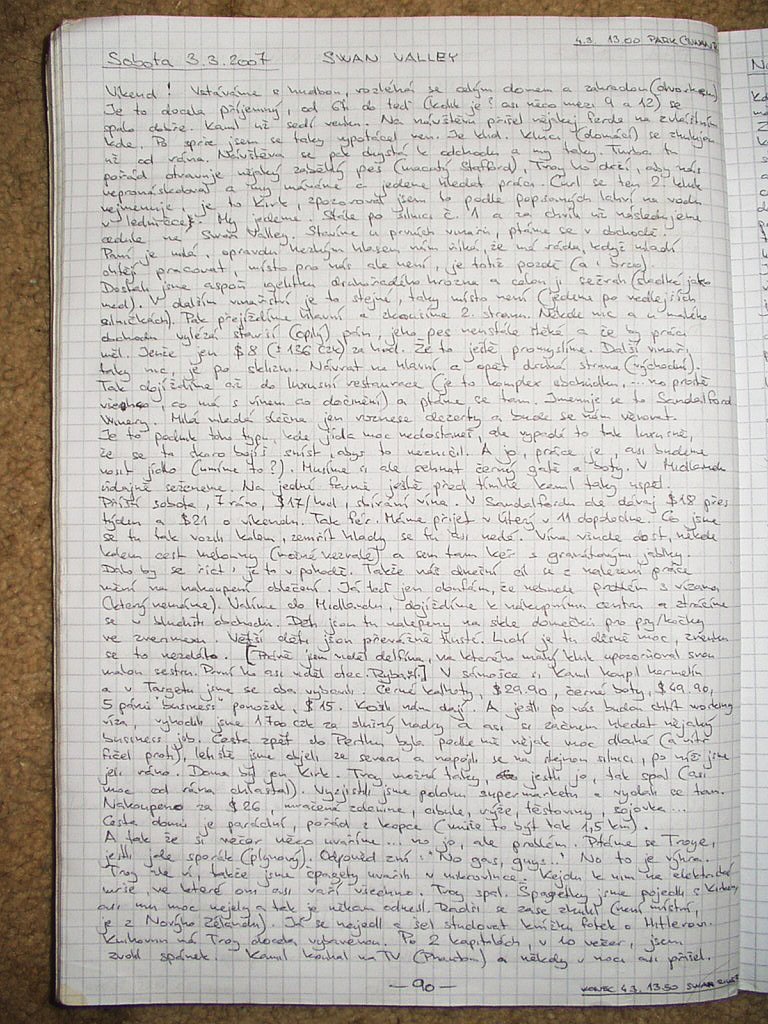 4.3. 13.00 PARK (SWAN R.
Sobota 3.3.2007 SWAN VALLEY
Víkend! Vstáváme s hudbou, rozléhá se celým domem a zahradou (dvorkem)
Je to docela příjemný, od 6h do teď (kolik je? asi něco mezi 9 a 12) se
spalo dobře. Kamil už sedí venku. Na návštěvu přišel nějakej ferda na zvláštním
kole. Po sprše jsem se taky vypotácel ven. Je klid. Kluci (domácí) se zhulujou
už od rána. Návštěva se pak chystá k odchodu a my taky. Turba tu
pořád otravuje nějaký zatoulaný pes (macatý Stafford), Troy ho drží, aby nás
nepronásledoval a my máváme a jedeme hledat práci. Carl se ten 2. kluk
nejmenuje, je to Kirk, zpozoroval jsem to podle popsaných lahví na vodu
v ledničce. My jedeme. Stále po silnici č. 1 a za chvíli už následujeme
cedule na Swan Valley. Stavíme u prvních vinařů, ptáme se v obchodě.
Paní je milá, opravdu hezkým hlasem nám říká, že má ráda, když mladí
chtějí pracovat, místo pro nás ale není, je totiž pozdě (a i brzo).
Dostali jsme aspoň igelitku drahořadého hrozna a celou ji sežrali (sladké jako
med). V dalším vinařství je to stejné, taky místo není (jedeme po vedlejších
silničkách). Pak přejíždíme hlavní a zkoušíme 2. stranu. Někde nic a u malého
obchodu vylézá starší (opilý) pán, jeho pes neustále štěká a že by práci
měl. Jenže jen $8 (= 136 CZK) za hod. Že to ještě promyslíme. Další vinaři,
taky nic, je po sklizni. Návrat na hlavní a opět druhá strana (východní).
Tak dojíždíme až do luxusní restaurace (je to komplex obchůdku, ... no prostě
všeho, co má s vínem co dočinění) a ptáme se tam. Jmenuje se to Sandalford
Winery. Milá mladá slečna jen roznese dezerty a bude se nám věnovat.
Je to podnik toho typu, kde jídla moc nedostaneš, ale vypadá to tak luxusně,
že se to skoro bojíš sníst, abys to nezničil. A jo, práce je, asi budeme
nosit jídlo (umíme to?). Musíme si ale sehnat černý gatě a boty. V Midlandu
údajně seženeme. Na jedné farmě ještě před tímhle Kamil taky uspěl.
Příští sobota, 7 ráno, $17/hod, sbírání vína. V Sandalfordu ale dávaj $18 přes
týden a $21 o víkendu. Tak fér. Máme přijet v úterý v 11 dopoledne. Co jsme
se tu tak vozili kolem, zemřít hlady se tu asi nedá. Vína všude dost, někde
kolem cest melouny (možná nezralé) a sem tam keř s granátovými jablky.
Dalo by se říct, je to v pohodě. Takže náš dnešní cíl se z nalezení práce
mění na nakoupení oblečení. Já teď jen doufám, že nebude problém s vízama
(který nemáme). Valíme do Midlandu, dojíždíme k nákupnímu centru a ztrácíme
se v bludišti obchodů. Děti jsou tu nalepeny na skle domečků pro psy/kočky
ve zverimexu. Větší děti jsou převážně tlusté. Lidí je tu děsně moc, zvenku
se to nezdálo. [Právě jsem viděl delfína, na kterého malý kluk upozorňoval svou
malou sestru. První ho asi viděl otec. Rybaří.] V sámošce si Kamil koupil
a v Targetu jsme se oba vybavili. Černé kalhoty, $29.90, černé boty, $49.90,
5 párů "business" ponožek, $15. Košili nám dají. A jestli po nás budou chtít working
víza, vyhodili jsme 1700 CZK za slušný hadry a asi si začnem hledat nějaký
business job. Cesta zpět do Perthu byla podle mě nějak moc dlouhá (a vítr
fičel proti), letiště jsme objeli ze severu a napojili se na stejnou silnici, po níž jsme
jeli ráno. Doma byl jen Kirk. Troy možná taky, jestli jo, tak spal (asi
moc od rána chlastal). Vyzjistili jsme polohu supermarketu a vydali se tam.
Nakoupeno za $26, mražená zelenina, cibule, rýže, těstoviny, sojovka...
Cesta domů je parádní, pořád z kopce (může to být tak 1,5 km).
A tak že si večer něco uvaříme... no jo, ale problém. Ptáme se Troye,
jestli jde sporák (plynový). Odpověď zní: "No gas, guys..." No to je výhra.
Troy ale ví, takže jsme špagety uvařili v mikrovlnce. Kejdu k nim na elektrické
míse, ve které oni asi vaří všechno. Troy spal. Špagetky jsme pojedli s Kirkem,
asi mu moc nejely a tak je někam odnesl. Radši se zase zhulil (není místní,
je z Novýho Zélandu). Já se najedl a šel studovat knížku fotek o Hitlerovi.
Knihovnu má Troy docela vybavenou. Po 2 kapitolách, v 10 večer, jsem
zvolil spánek. Kamil koukal na TV (Phantom) a někdy v noci asi přišel.
– 90 –
KONEC 4.3. 13.50 SWAN RIVER